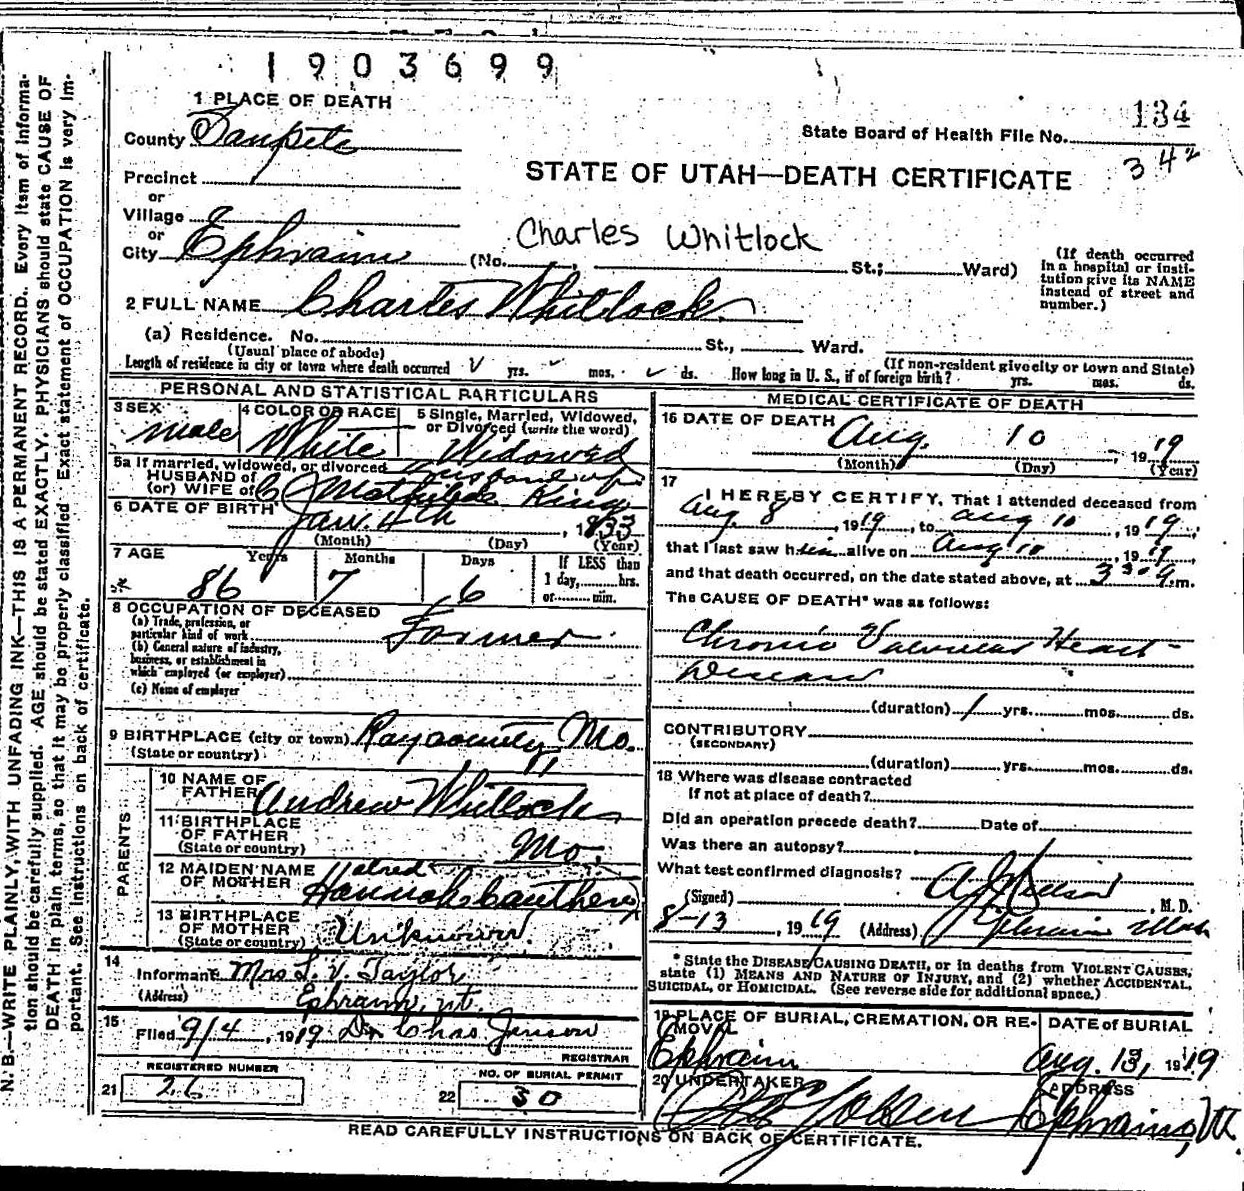 1903699
1 PLACE OF DEATH
County Sanpete
State Board of Health File No. 134
342
STATE OF UTAH—DEATH CERTIFICATE
Precinct
or
Village
or
City Ephraim (No. , St.; Ward)
Charles Whitlock
(If death occurred
in a hospital or insti-
tution give its NAME
instead of street and
number.)
2 FULL NAME Charles Whitlock
(a) Residence. No. St., Ward.
(Usual place of abode) (If non-resident give city or town and State)
Length of residence in city or town where death occurred yrs. mos. ds. How long in U. S., if of foreign birth? yrs. mos. ds.
PERSONAL AND STATISTICAL PARTICULARS
3 SEX male
4 COLOR OR RACE White
5 Single, Married, Widowed,
or Divorced (write the word)
Widowed
5a If married, widowed, or divorced
HUSBAND of
(or) WIFE of
husband of
King
6 DATE OF BIRTH Jan. 4th , 1833
(Month) (Day) (Year)
7 AGE Years Months Days If LESS than
1 day, hrs.
or min.
86 7 6
8 OCCUPATION OF DECEASED
(a) Trade, profession, or
particular kind of work Farmer
(b) General nature of industry,
business, or establishment in
which employed (or employer)
(c) Name of employer
9 BIRTHPLACE (city or town) Ray county Mo.
(State or country)
PARENTS
10 NAME OF
FATHER Andrew Whitlock
11 BIRTHPLACE
OF FATHER
(State or country) Mo.
12 MAIDEN NAME
OF MOTHER Hannah
13 BIRTHPLACE
OF MOTHER
(State or country) Unknown
14
Informant Mrs L. V. Taylor
(Address) Ephraim, Ut.
15
Filed 9/4, 1919 Dr Chas Jenson
REGISTRAR
REGISTERED NUMBER
21 26
NO. OF BURIAL PERMIT
22 30
MEDICAL CERTIFICATE OF DEATH
16 DATE OF DEATH Aug. 10 , 1919
(Month) (Day) (Year)
17
I HEREBY CERTIFY, That I attended deceased from
Aug 8 , 1919 , to Aug 10 , 1919,
that I last saw him alive on Aug 10 , 1919,
and that death occurred, on the date stated above, at 3 30 a.m.
The CAUSE OF DEATH* was as follows:
Chronic Valvular Heart
Disease
(duration) 1 yrs. mos. ds.
CONTRIBUTORY
(SECONDARY)
(duration) yrs. mos. ds.
18 Where was disease contracted
If not at place of death?
Did an operation precede death? Date of
Was there an autopsy?
What test confirmed diagnosis?
(Signed) , M. D.
8-13 , 1919 (Address) Ephraim Utah
* State the DISEASE CAUSING DEATH, or in deaths from VIOLENT CAUSES,
state (1) MEANS AND NATURE OF INJURY, and (2) whether ACCIDENTAL,
SUICIDAL, OR HOMICIDAL. (See reverse side for additional space.)
19 PLACE OF BURIAL, CREMATION, OR RE-
MOVAL
Ephraim
DATE OF BURIAL
Aug. 13, 1919
20 UNDERTAKER
ADDRESS
Ephraim, Ut.
READ CAREFULLY INSTRUCTIONS ON BACK OF CERTIFICATE.
N. B.—WRITE PLAINLY, WITH UNFADING INK—THIS IS A PERMANENT RECORD. Every item of informa-
tion should be carefully supplied. AGE should be stated EXACTLY. PHYSICIANS should state CAUSE OF
DEATH in plain terms, so that it may be properly classified. Exact statement of OCCUPATION is very im-
portant. See instructions on back of certificate.